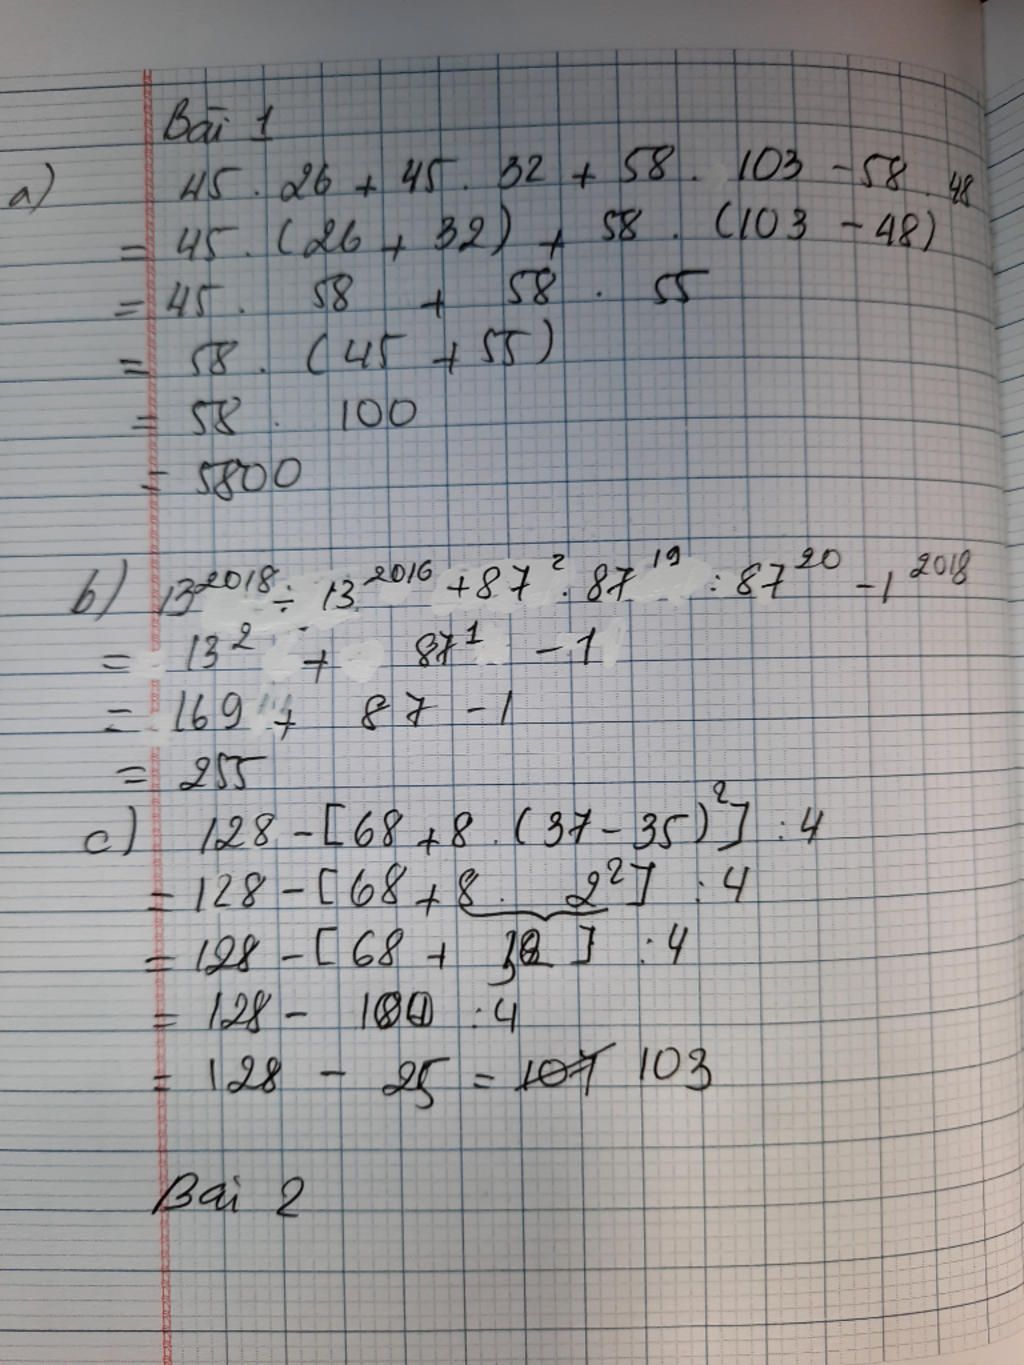 Bài 1
a) 45 . 26 + 45 . 32 + 58 . 103 - 58 . 48
= 45 . (26 + 32) + 58 . (103 - 48)
= 45 . 58 + 58 . 55
= 58 . (45 + 55)
= 58 . 100
= 5800
b) 13²⁰¹⁸ ÷ 13²⁰¹⁶ + 87² . 87¹⁹ : 87²⁰ - 1²⁰¹⁸
= 13² + 87¹ - 1
= 169 + 87 - 1
= 255
c) 128 - [68 + 8 . (37 - 35)²] : 4
= 128 - [68 + 8 . 2²] : 4
= 128 - [68 + 32] : 4
= 128 - 100 : 4
= 128 - 25 = 107 103
Bài 2